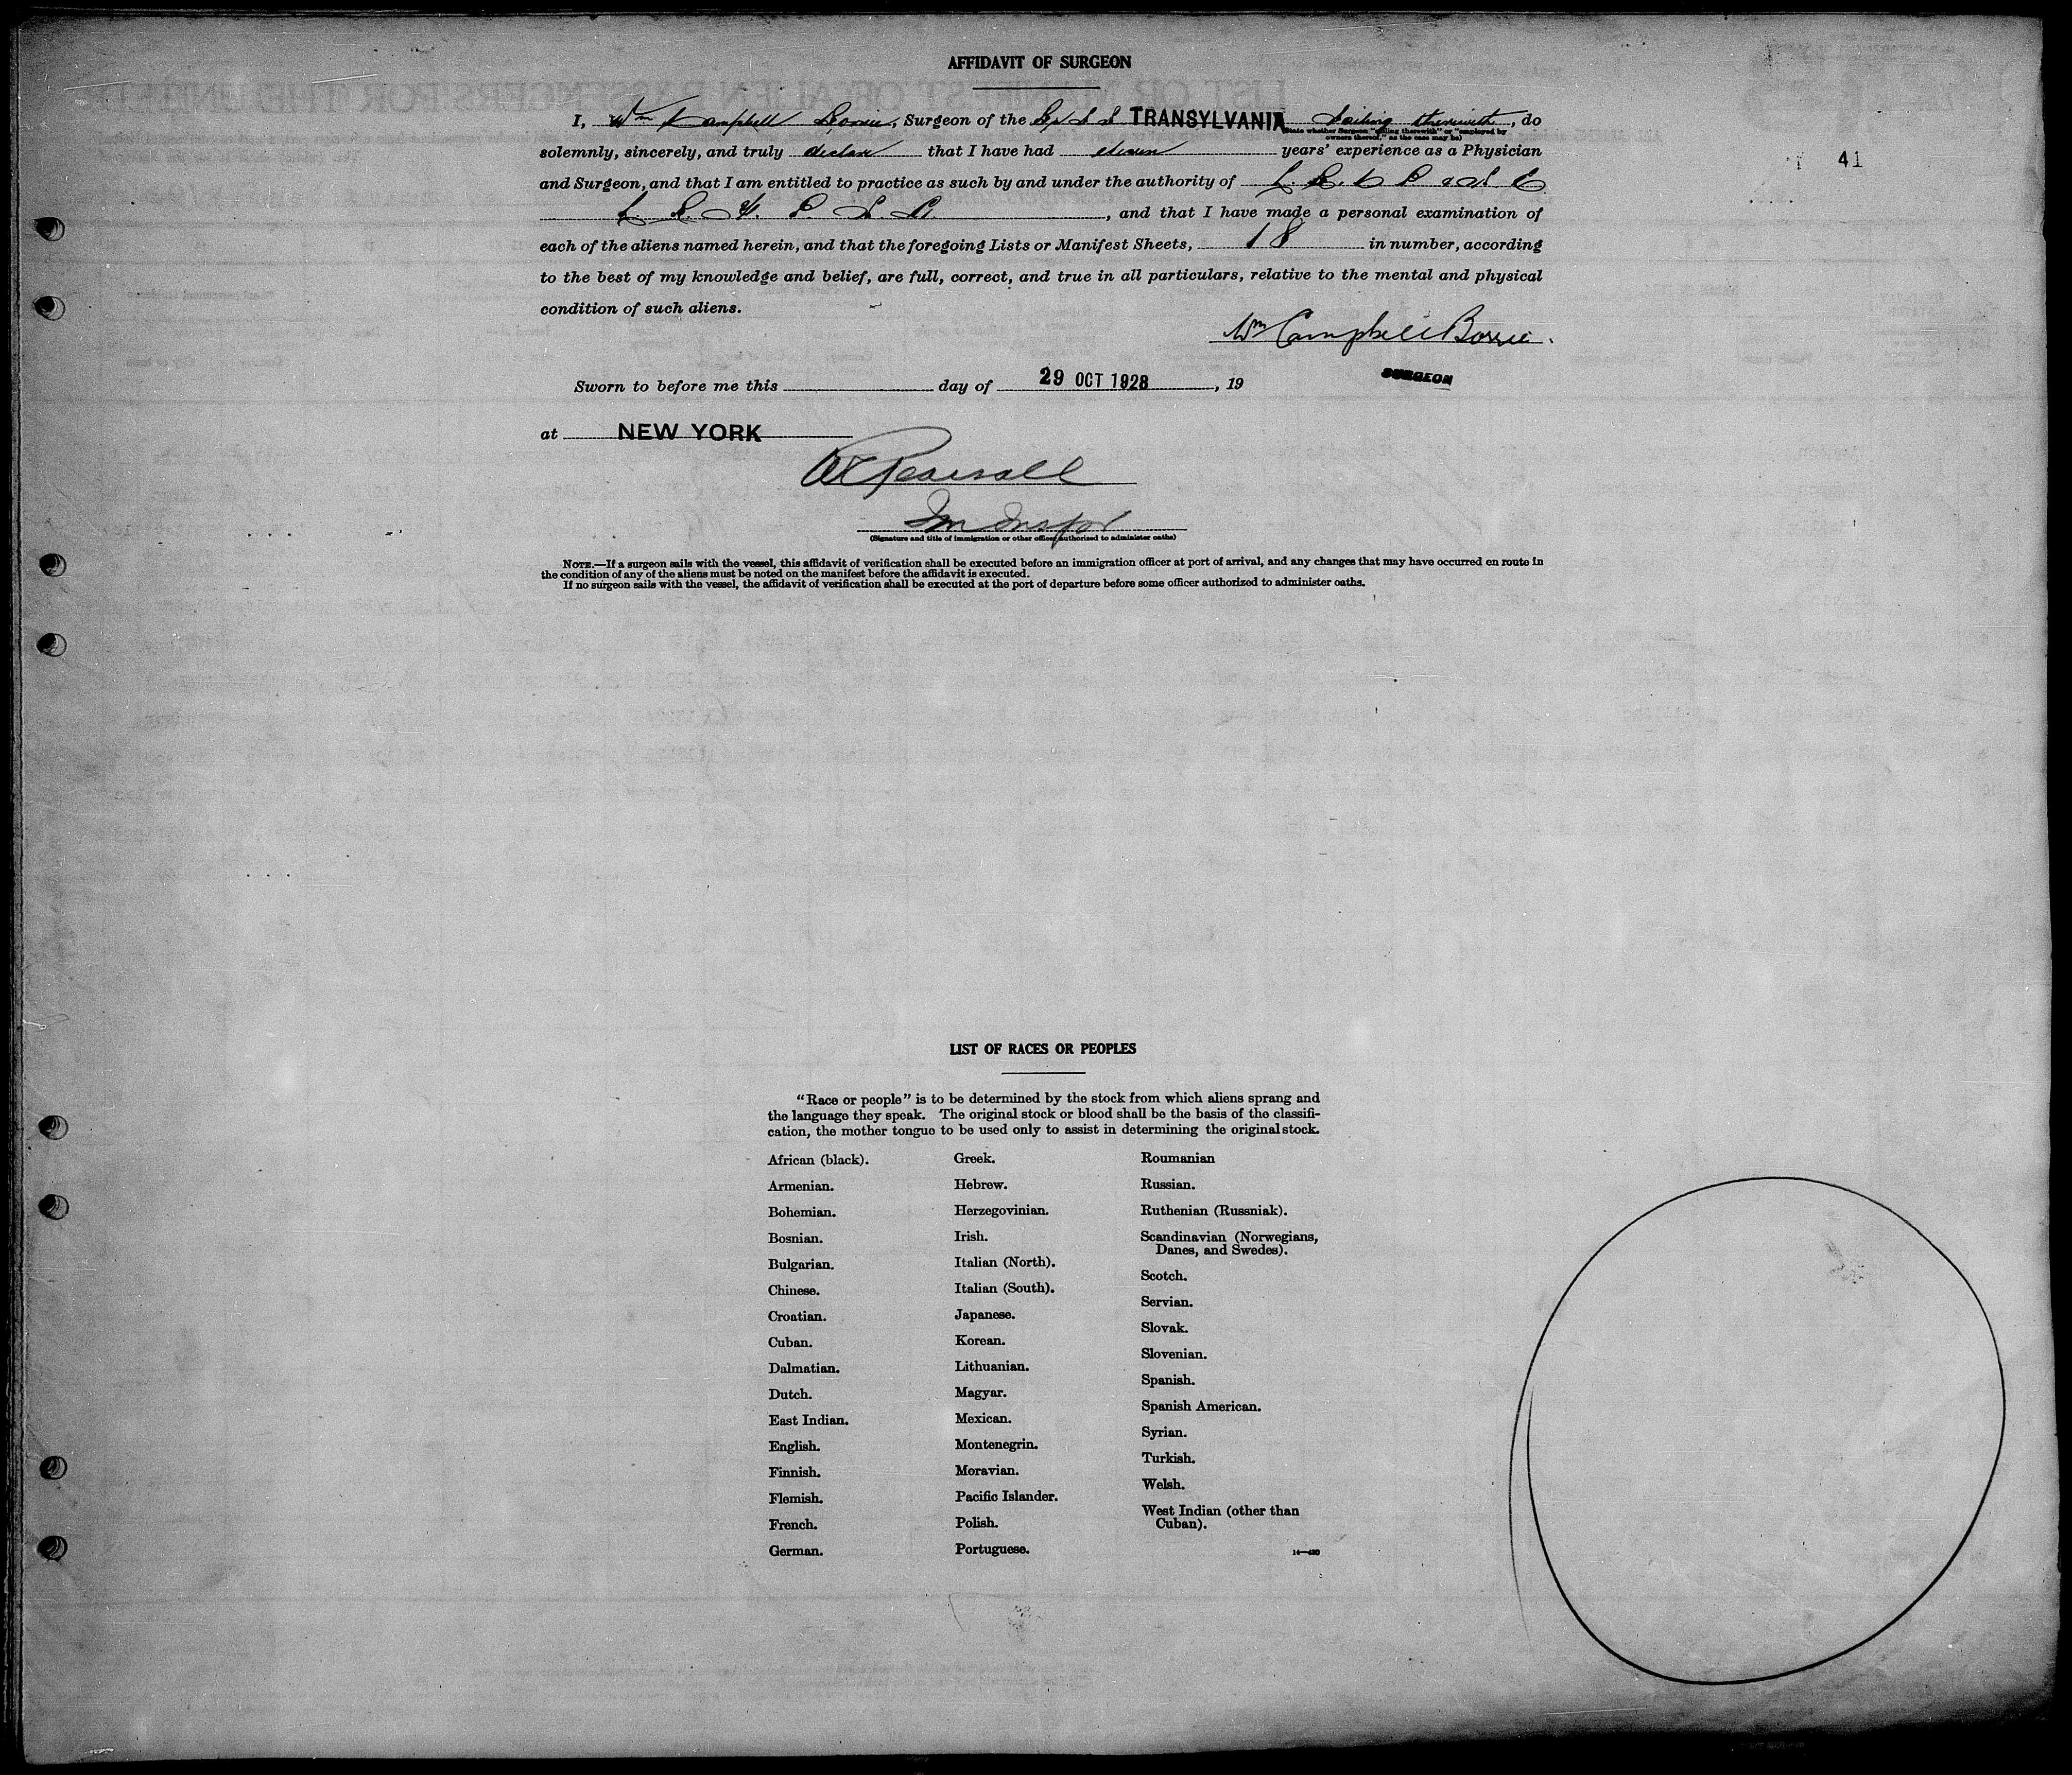 AFFIDAVIT OF SURGEON
41
I, Wm Campbell Borrie, Surgeon of the S S TRANSYLVANIA Sailing therewith, do
(State whether Surgeon "sailing therewith" or "employed by
owners thereof," as the case may be)
solemnly, sincerely, and truly declare that I have had eleven years' experience as a Physician
and Surgeon, and that I am entitled to practice as such by and under the authority of
, and that I have made a personal examination of
each of the aliens named herein, and that the foregoing Lists or Manifest Sheets, 18 in number, according
to the best of my knowledge and belief, are full, correct, and true in all particulars, relative to the mental and physical
condition of such aliens.
Wm Campbell Borrie.
SURGEON
Sworn to before me this day of 29 OCT 1928, 19
at NEW YORK
Pearsall
Im Inspor
(Signature and title of immigration or other officer authorized to administer oaths)
NOTE.—If a surgeon sails with the vessel, this affidavit of verification shall be executed before an immigration officer at port of arrival, and any changes that may have occurred en route in
the condition of any of the aliens must be noted on the manifest before the affidavit is executed.
If no surgeon sails with the vessel, the affidavit of verification shall be executed at the port of departure before some officer authorized to administer oaths.
LIST OF RACES OR PEOPLES
"Race or people" is to be determined by the stock from which aliens sprang and
the language they speak. The original stock or blood shall be the basis of the classifi-
cation, the mother tongue to be used only to assist in determining the original stock.
African (black).
Armenian.
Bohemian.
Bosnian.
Bulgarian.
Chinese.
Croatian.
Cuban.
Dalmatian.
Dutch.
East Indian.
English.
Finnish.
Flemish.
French.
German.
Greek.
Hebrew.
Herzegovinian.
Irish.
Italian (North).
Italian (South).
Japanese.
Korean.
Lithuanian.
Magyar.
Mexican.
Montenegrin.
Moravian.
Pacific Islander.
Polish.
Portuguese.
Roumanian
Russian.
Ruthenian (Russniak).
Scandinavian (Norwegians,
Danes, and Swedes).
Scotch.
Servian.
Slovak.
Slovenian.
Spanish.
Spanish American.
Syrian.
Turkish.
Welsh.
West Indian (other than
Cuban).